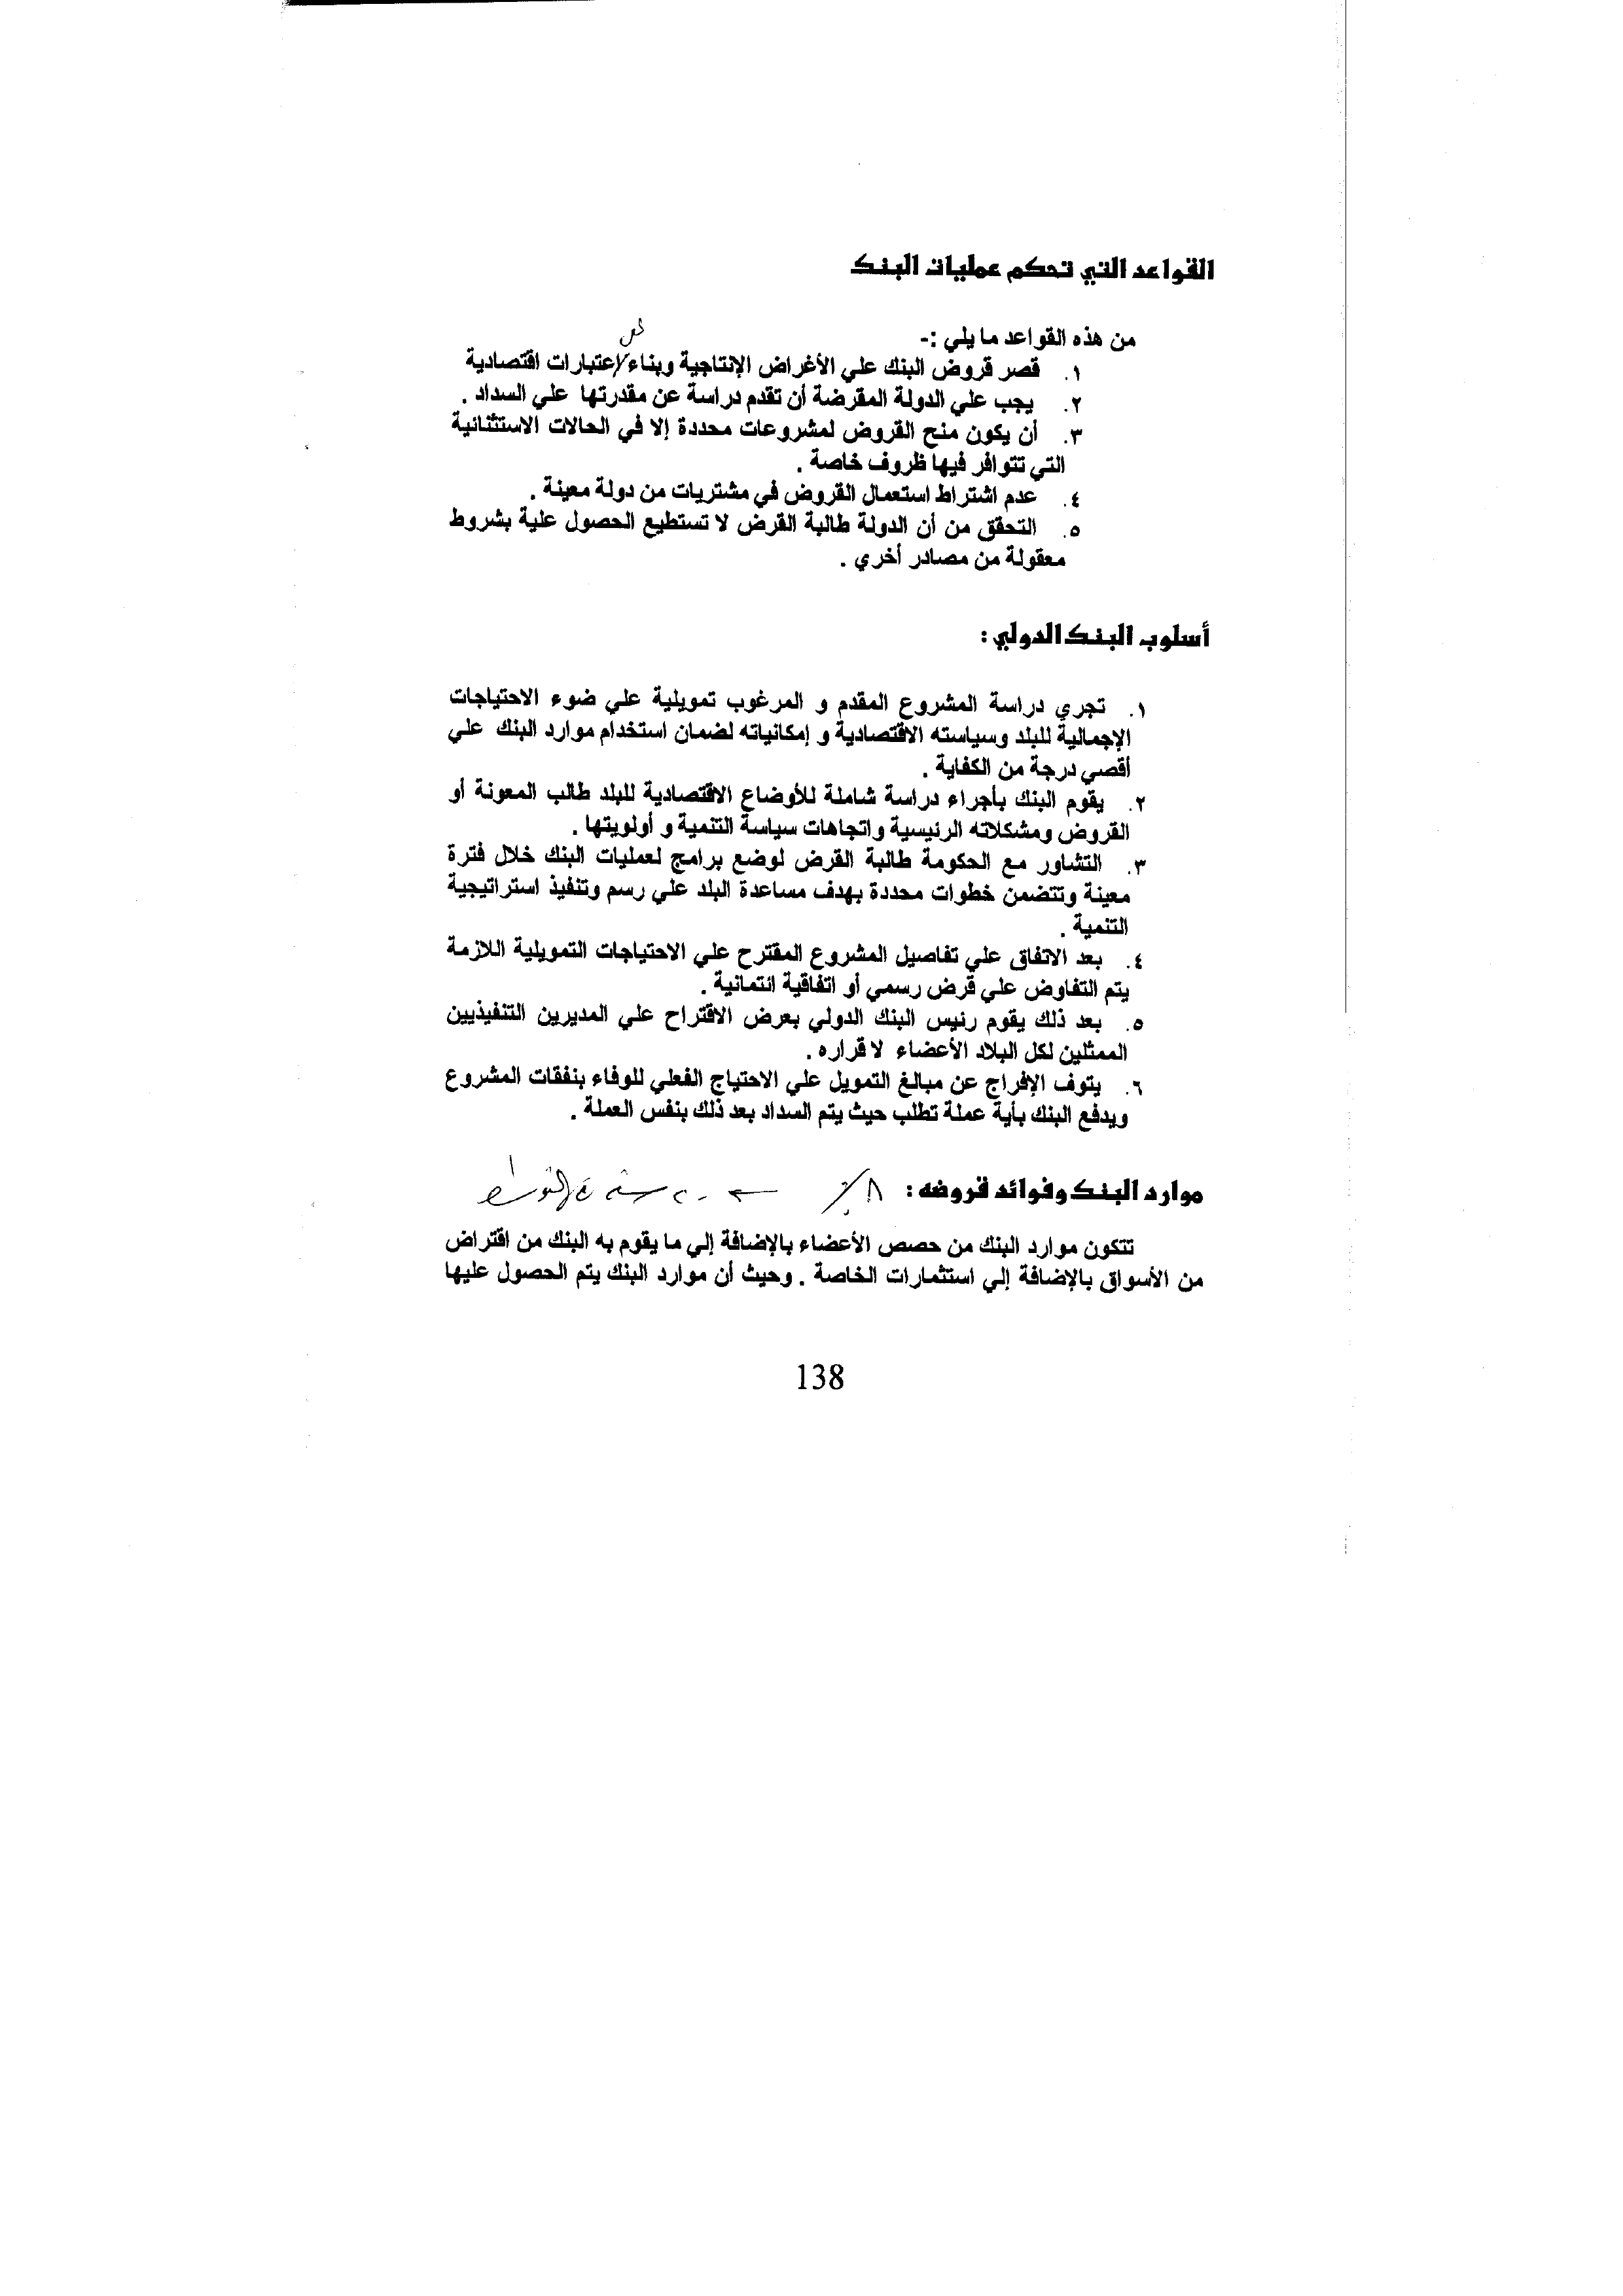 القواعد التي تحكم عمليات البنك
من هذه القواعد ما يلي :-
١. قصر قروض البنك علي الأغراض الإنتاجية وبناء إعتبارات اقتصادية
٢. يجب علي الدولة المقرضة أن تقدم دراسة عن مقدرتها علي السداد .
٣. أن يكون منح القروض لمشروعات محددة إلا في الحالات الاستثنائية
التي تتوافر فيها ظروف خاصة .
٤. عدم اشتراط استعمال القروض في مشتريات من دولة معينة .
٥. التحقق من أن الدولة طالبة القرض لا تستطيع الحصول علية بشروط
معقولة من مصادر أخري .
أسلوب البنك الدولي :
١. تجري دراسة المشروع المقدم و المرغوب تمويلية علي ضوء الاحتياجات
الإجمالية للبلد وسياسته الاقتصادية و إمكانياته لضمان استخدام موارد البنك علي
أقصي درجة من الكفاية .
٢. يقوم البنك بأجراء دراسة شاملة للأوضاع الاقتصادية للبلد طالب المعونة أو
القروض ومشكلاته الرئيسية واتجاهات سياسة التنمية و أولويتها .
٣. التشاور مع الحكومة طالبة القرض لوضع برامج لعمليات البنك خلال فترة
معينة وتتضمن خطوات محددة بهدف مساعدة البلد علي رسم وتنفيذ استراتيجية
التنمية .
٤. بعد الاتفاق علي تفاصيل المشروع المقترح علي الاحتياجات التمويلية اللازمة
يتم التفاوض علي قرض رسمي أو اتفاقية ائتمانية .
٥. بعد ذلك يقوم رئيس البنك الدولي بعرض الاقتراح علي المديرين التنفيذيين
الممثلين لكل البلاد الأعضاء لا قراره .
٦. يتوف الإفراج عن مبالغ التمويل علي الاحتياج الفعلي للوفاء بنفقات المشروع
ويدفع البنك بأية عملة تطلب حيث يتم السداد بعد ذلك بنفس العملة .
موارد البنك وفوائد قروضه : ٨٪ ← ٢٠ سنة
تتكون موارد البنك من حصص الأعضاء بالإضافة إلي ما يقوم به البنك من اقتراض
من الأسواق بالإضافة إلي استثمارات الخاصة . وحيث أن موارد البنك يتم الحصول عليها
138